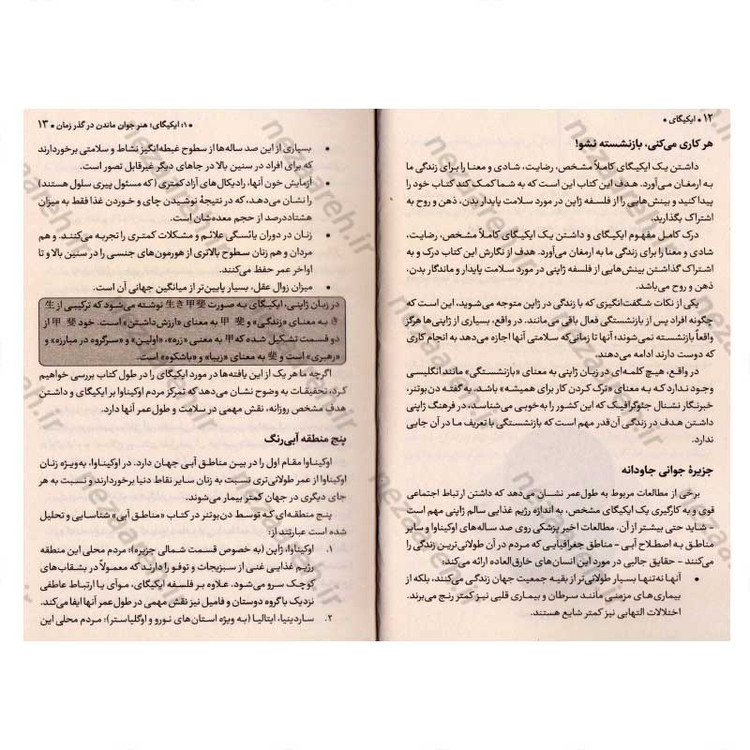 ۱۲ • ایکیگای •
هر کاری می‌کنی، بازنشسته نشو!
داشتن یک ایکیگای کاملاً مشخص، رضایت، شادی و معنا را برای زندگی ما
به ارمغان می‌آورد. هدف این کتاب این است که به شما کمک کند کتاب خود را
پیدا کنید و بینش‌هایی را از فلسفه ژاپن در مورد سلامت پایدار بدن، ذهن و روح به
اشتراک بگذارید.
درک کامل مفهوم ایکیگای و داشتن یک ایکیگای کاملاً مشخص، رضایت،
شادی و معنا را برای زندگی ما به ارمغان می‌آورد. هدف از نگارش این کتاب درک و به
اشتراک گذاشتن بینش‌هایی از فلسفه ژاپن در مورد سلامت پایدار و ماندگار بدن،
ذهن و روح می‌باشد.
یکی از نکات شگفت‌انگیزی که با زندگی در ژاپن متوجه می‌شوید، این است که
چگونه افراد پس از بازنشستگی فعال باقی می‌مانند. در واقع، بسیاری از ژاپنی‌ها هرگز
واقعاً بازنشسته نمی‌شوند؛ آنها تا زمانی‌که سلامتی آنها اجازه می‌دهد به انجام کاری
که دوست دارند ادامه می‌دهند.
در واقع، هیچ کلمه‌ای در زبان ژاپنی به معنای «بازنشستگی» مانند انگلیسی
وجود ندارد که به معنای «ترک کردن کار برای همیشه» باشد. به گفته دن‌بوتنر،
خبرنگار نشنال جئوگرافیک که این کشور را به خوبی می‌شناسد، در فرهنگ ژاپنی
داشتن هدف در زندگی آن‌قدر مهم است که بازنشستگی با تعریف ما در آن جایی
ندارد.
جزیرهٔ جوانی جاودانه
برخی از مطالعات مربوط به طول‌عمر نشان می‌دهد که داشتن ارتباط اجتماعی
قوی و به کارگیری یک ایکیگای مشخص، به اندازه رژیم غذایی سالم ژاپنی مهم است
- شاید حتی بیشتر از آن. مطالعات اخیر پزشکی روی صد ساله‌های اوکیناوا و سایر
مناطق به اصطلاح آبی - مناطق جغرافیایی که مردم در آن طولانی‌ترین زندگی را
می‌کنند - حقایق جالبی در مورد این انسان‌های خارق‌العاده ارائه می‌کند:
• آنها نه‌تنها بسیار طولانی‌تر از بقیه جمعیت جهان زندگی می‌کنند، بلکه از
بیماری‌های مزمنی مانند سرطان و بیماری قلبی نیز کمتر رنج می‌برند.
اختلالات التهابی نیز کمتر شایع هستند.
۱: ایکیگای؛ هنر جوان ماندن در گذر زمان • ۱۳
• بسیاری از این صد ساله‌ها از سطوح غبطه‌انگیز نشاط و سلامتی برخوردارند
که برای افراد در سنین بالا در جاهای دیگر غیرقابل تصور است.
• آزمایش خون آنها، رادیکال‌های آزاد کمتری (که مسئول پیری سلول هستند)
را نشان می‌دهد، که در نتیجهٔ نوشیدن چای و خوردن غذا فقط به میزان
هشتاددرصد از حجم معده‌شان است.
• زنان در دوران یائسگی علائم و مشکلات کمتری را تجربه می‌کنند. و هم
مردان و هم زنان سطوح بالاتری از هورمون‌های جنسی را در سنین بالا و تا
اواخر عمر حفظ می‌کنند.
• میزان زوال عقل، بسیار پایین‌تر از میانگین جهانی آن است.
در زبان ژاپنی، ایکیگای به صورت 生き甲斐 نوشته می‌شود که ترکیبی از 生
き به معنای «زندگی» و 甲斐 به معنای «ارزش‌داشتن» است. خود 甲斐 از
دو قسمت تشکیل شده که 甲 به معنای «زره»، «اولین» و «سرگروه در مبارزه» و
«رهبری» است و 斐 به معنای «زیبا» و «باشکوه» است.
اگرچه ما هر یک از این یافته‌ها در مورد ایکیگای را در طول کتاب بررسی خواهیم
کرد، تحقیقات به وضوح نشان می‌دهد که تمرکز مردم اوکیناوا بر ایکیگای و داشتن
هدف مشخص روزانه، نقش مهمی در سلامت و طول‌عمر آنها دارد.
پنج منطقه آبی‌رنگ
اوکیناوا مقام اول را در بین مناطق آبی جهان دارد. در اوکیناوا، به‌ویژه زنان
اوکیناوا از عمر طولانی‌تری نسبت به زنان سایر نقاط دنیا برخوردارند و نسبت به هر
جای دیگری در جهان کمتر بیمار می‌شوند.
پنج منطقه‌ای که توسط دن‌بوتنر در کتاب «مناطق آبی» شناسایی و تحلیل
شده است عبارتند از:
۱. اوکیناوا، ژاپن (به خصوص قسمت شمالی جزیره): مردم محلی این منطقه
رژیم غذایی غنی از سبزیجات و توفو را دارند که معمولاً در بشقاب‌های
کوچک سرو می‌شود. علاوه بر فلسفه ایکیگای، موآی یا ارتباط عاطفی
نزدیک با گروه دوستان و فامیل نیز نقش مهمی در طول‌عمر آنها ایفا می‌کند.
۲. ساردینیا، ایتالیا (به ویژه استان‌های نورو و اوگلیاستر): مردم محلی این
nezaareh.ir